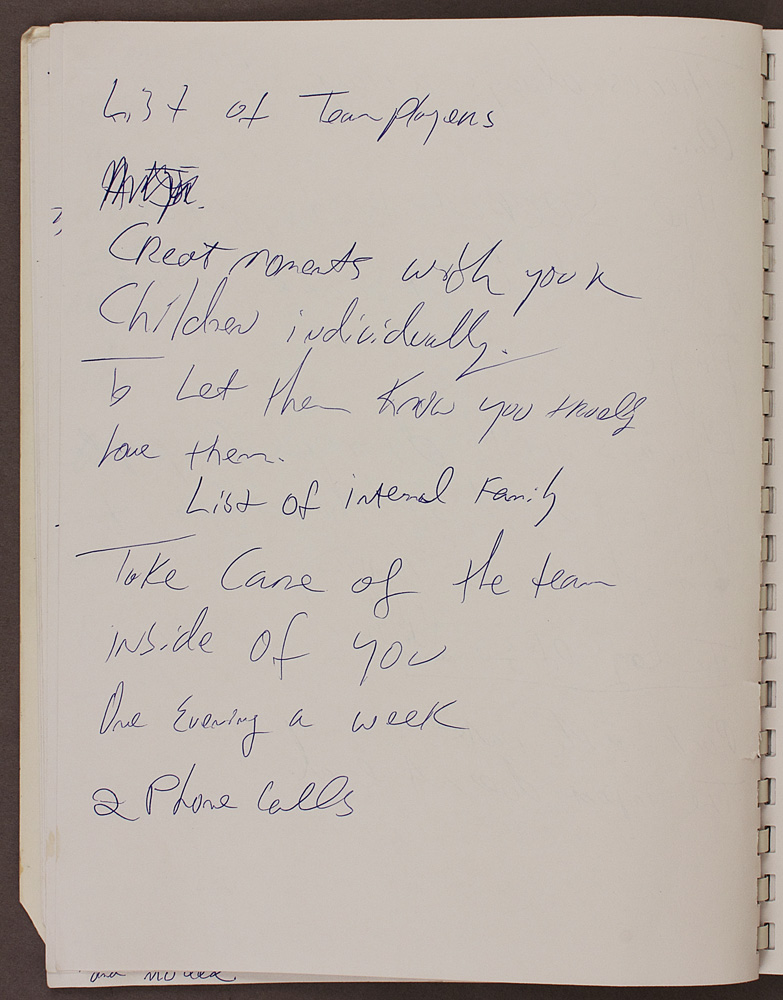 List of Team players
Creat moments with your
Children individually.
to Let them Know you truely
love them.
List of internal Family
Take Care of the team
inside of you
One Evening a week
2 Phone Calls